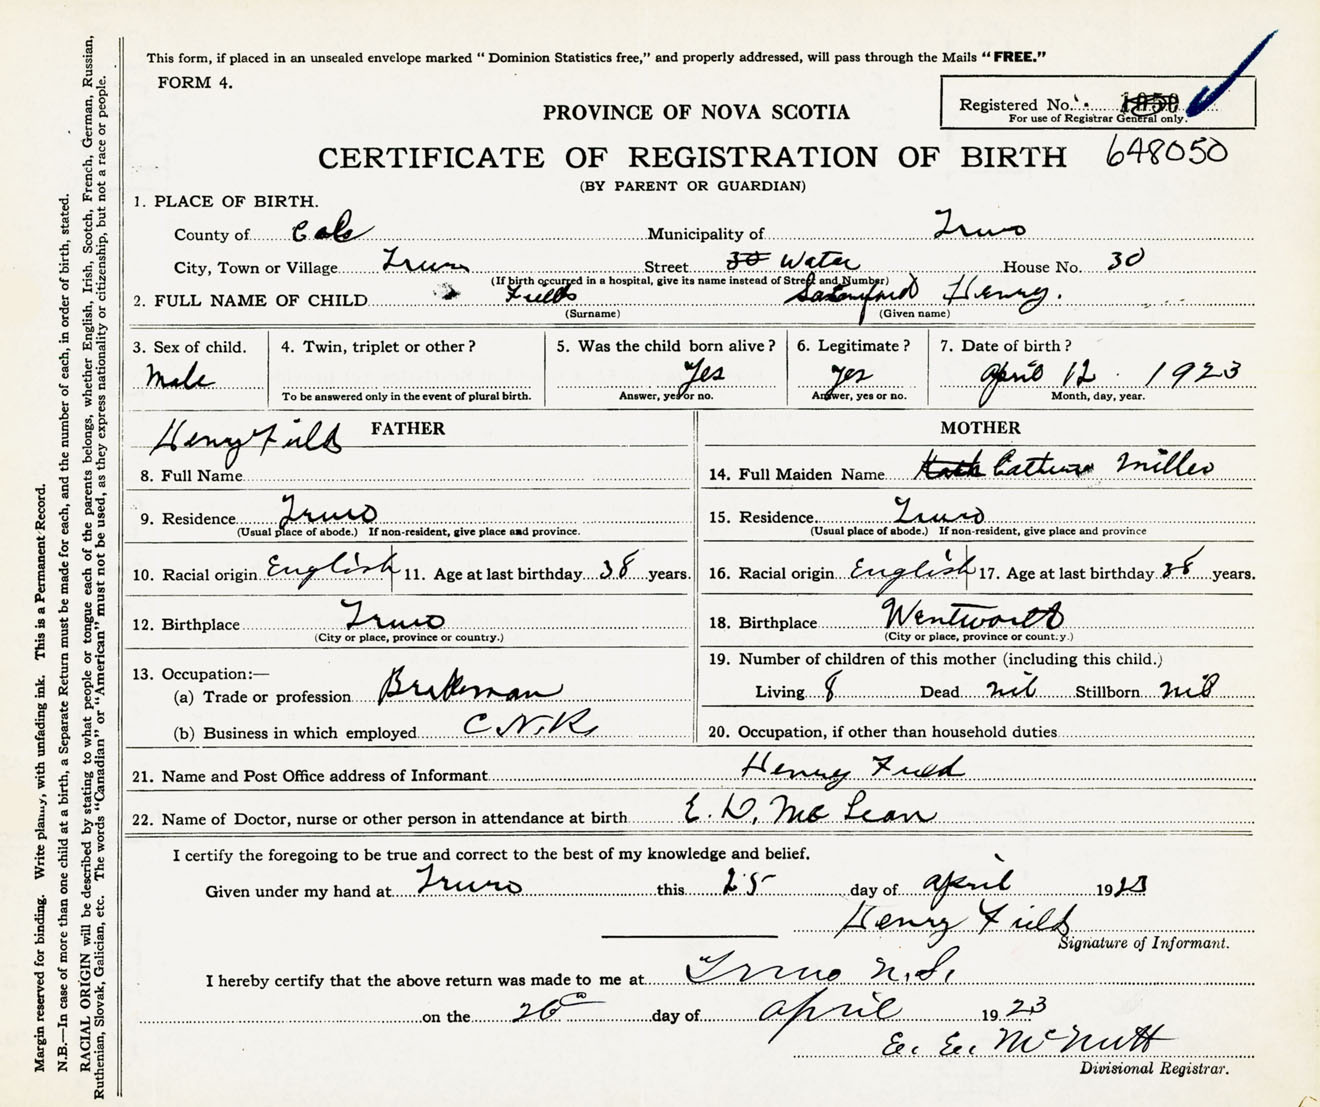 This form, if placed in an unsealed envelope marked "Dominion Statistics free," and properly addressed, will pass through the Mails "FREE."
FORM 4.
Registered No. 1050
For use of Registrar General only.
PROVINCE OF NOVA SCOTIA
CERTIFICATE OF REGISTRATION OF BIRTH 648050
(BY PARENT OR GUARDIAN)
1. PLACE OF BIRTH.
County of Col Municipality of Truro
City, Town or Village Truro Street 30 Water House No. 30
(If birth occurred in a hospital, give its name instead of Street and Number)
2. FULL NAME OF CHILD Fields Henry.
(Surname) (Given name)
3. Sex of child. 4. Twin, triplet or other? 5. Was the child born alive? 6. Legitimate? 7. Date of birth?
Male Yes Yes April 12 1923
To be answered only in the event of plural birth. Answer, yes or no. Answer, yes or no. Month, day, year.
FATHER MOTHER
Henry Field
8. Full Name 14. Full Maiden Name Miller
9. Residence Truro 15. Residence Truro
(Usual place of abode.) If non-resident, give place and province. (Usual place of abode.) If non-resident, give place and province
10. Racial origin English 11. Age at last birthday 38 years. 16. Racial origin English 17. Age at last birthday 38 years.
12. Birthplace Truro 18. Birthplace Wentworth
(City or place, province or country.) (City or place, province or country.)
13. Occupation:— 19. Number of children of this mother (including this child.)
(a) Trade or profession Brakeman Living 8 Dead nil Stillborn nil
(b) Business in which employed C.N.R. 20. Occupation, if other than household duties
21. Name and Post Office address of Informant Henry Field
22. Name of Doctor, nurse or other person in attendance at birth E. D. McLean
I certify the foregoing to be true and correct to the best of my knowledge and belief.
Given under my hand at Truro this 25 day of April 1923
Henry Field
Signature of Informant.
I hereby certify that the above return was made to me at Truro N.S.
on the 26 day of April 1923
E. E. McNutt
Divisional Registrar.
Margin reserved for binding. Write plainly, with unfading ink. This is a Permanent Record.
N.B.—In case of more than one child at a birth, a Separate Return must be made for each, and the number of each, in order of birth, stated.
RACIAL ORIGIN will be described by stating to what people or tongue each of the parents belongs, whether English, Irish, Scotch, French, German, Russian,
Ruthenian, Slovak, Galician, etc. The words "Canadian" or "American" must not be used, as they express nationality or citizenship, but not a race or people.